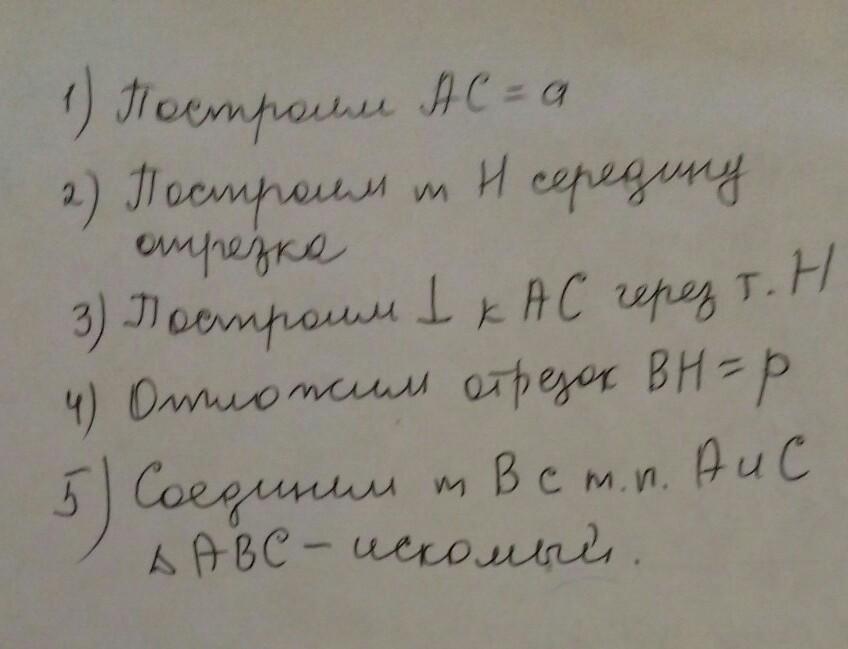 1) Построим AC = a
2) Построим т H середину
отрезка
3) Построим ⊥ к AC через т. H
4) Отложим отрезок BH = p
5) Соединим т B с т.п. A и C
△ ABC - искомый.